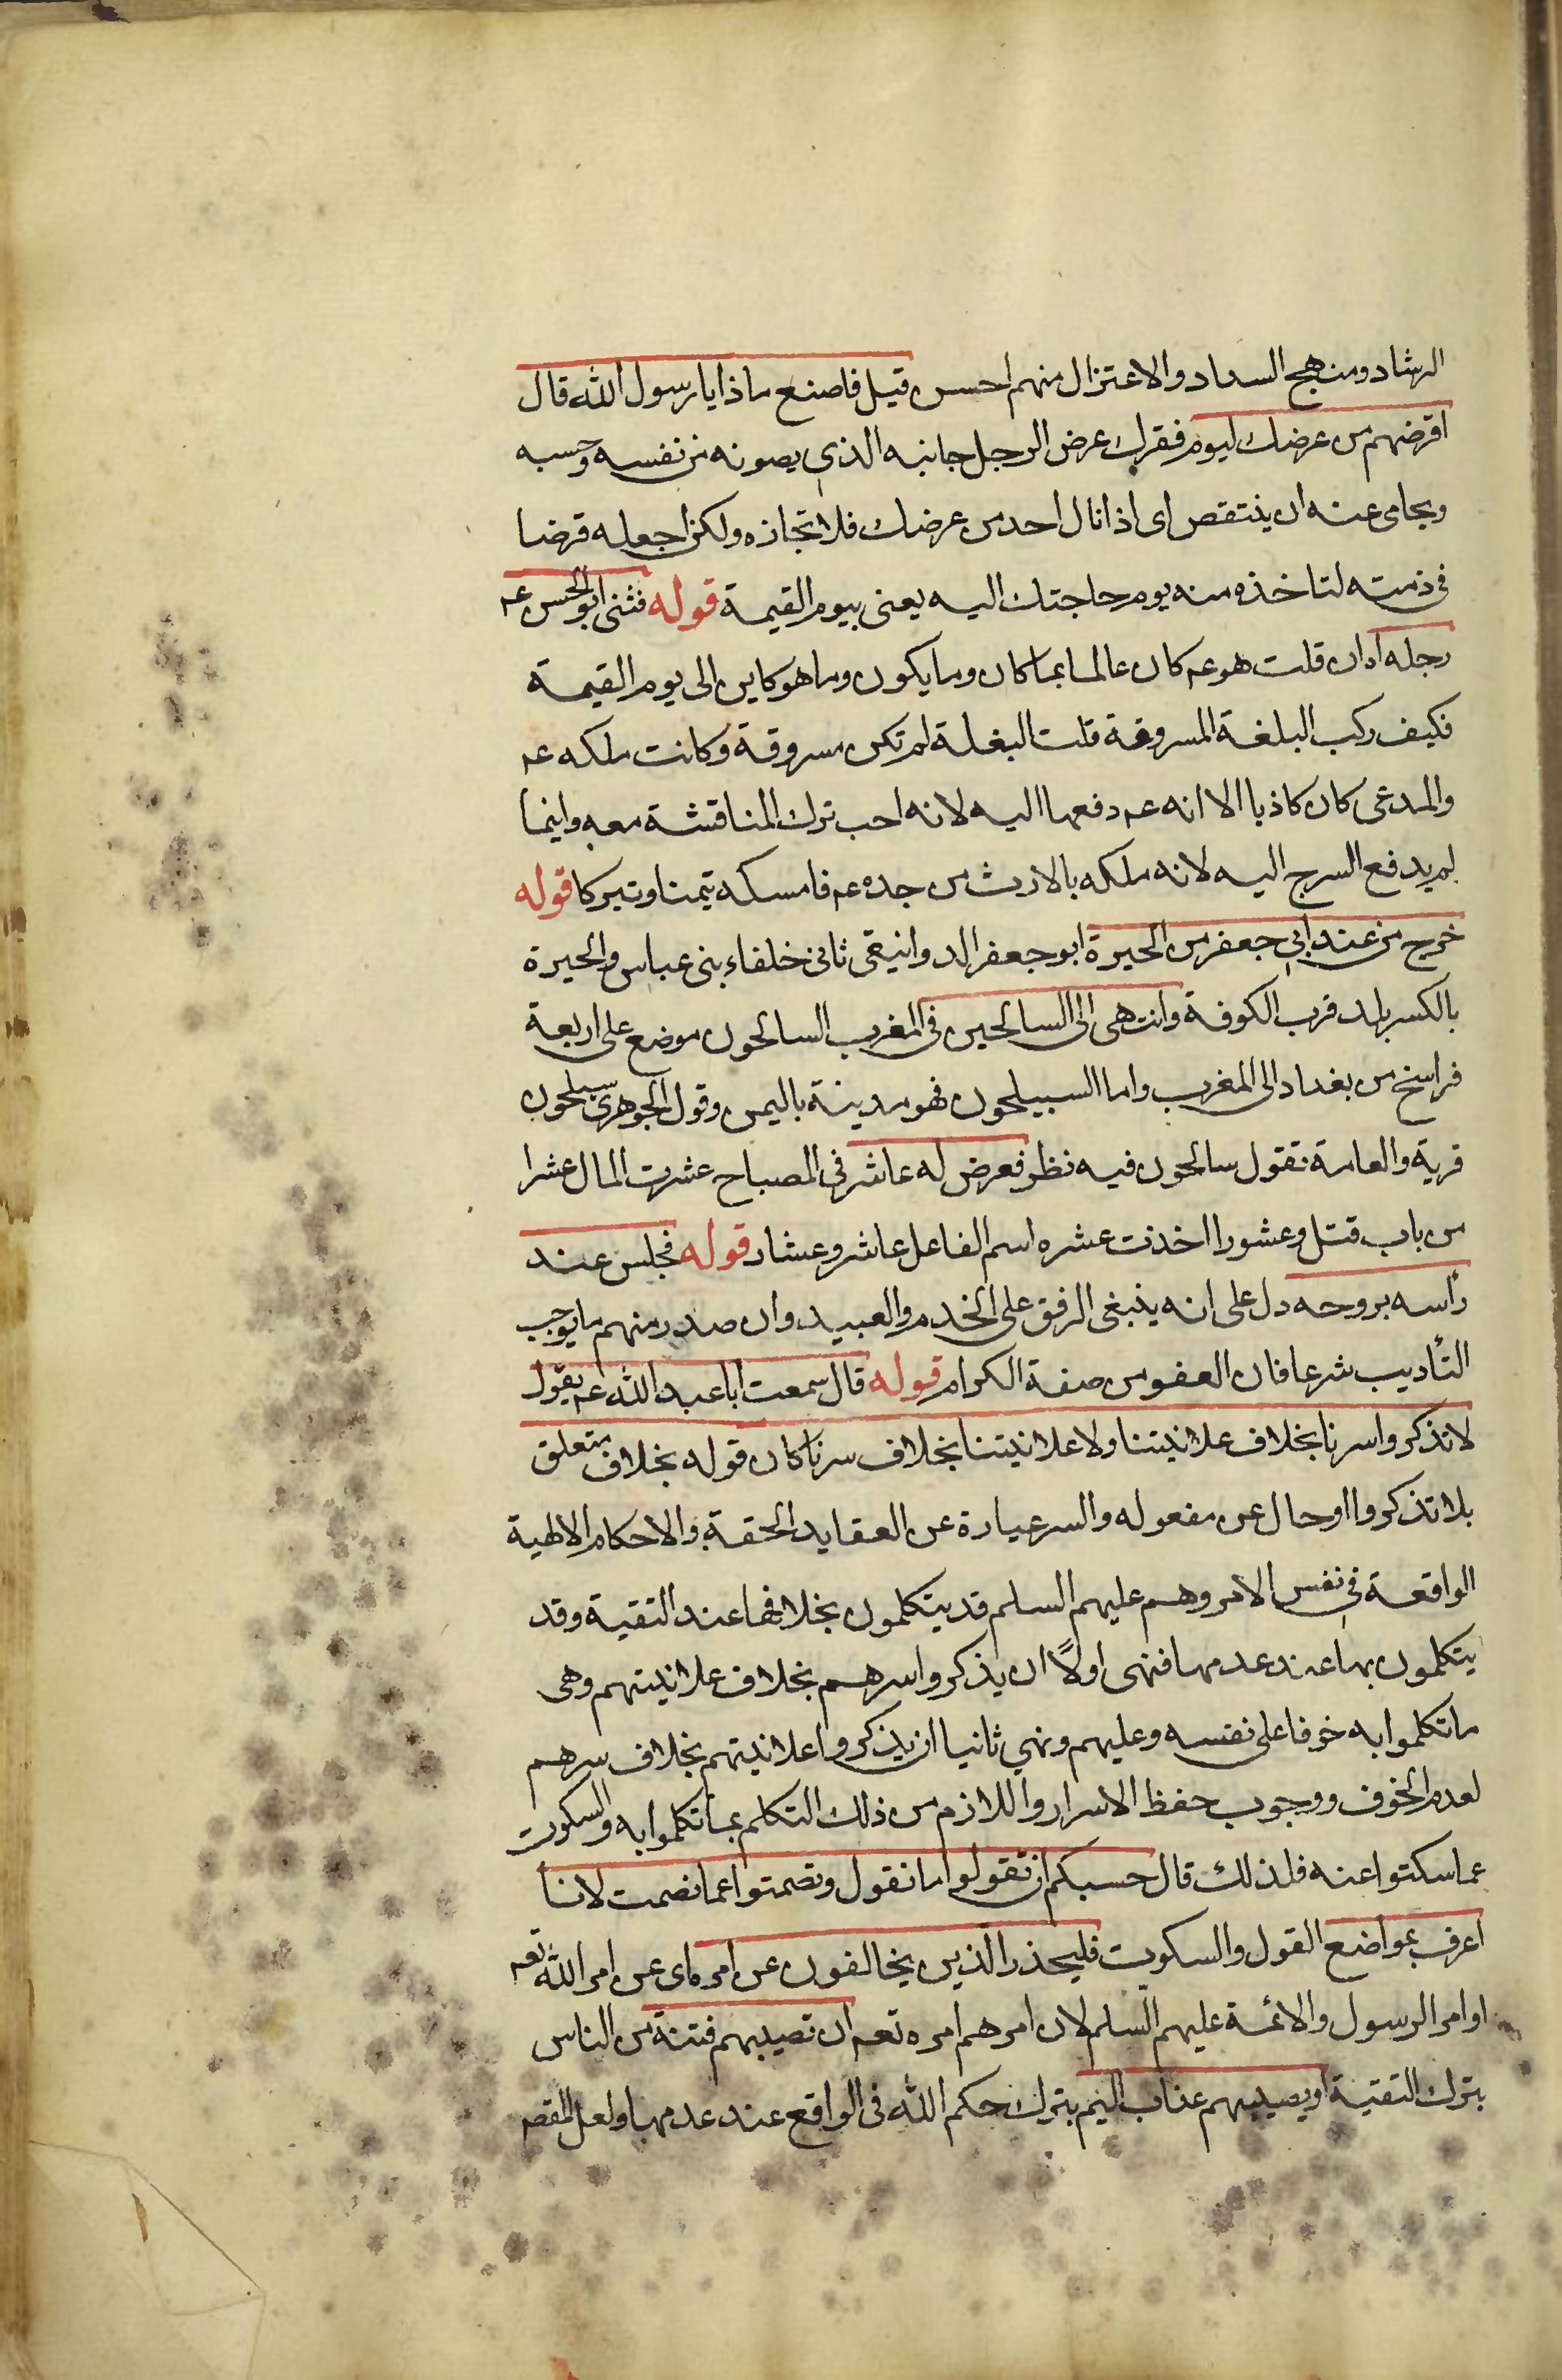 الرشاد ومنهج السداد والاعتزال منهم احسن قيل فاصنع ماذا يا رسول الله قال
اقرضهم من عرضك ليوم فقرك عرض الرجل جانبه الذي يصونه من نفسه وحسبه
ويحامى عنه ان ينتقص اى اذا نال احد من عرضك فلا تجازه ولكن اجعله قرضا
فى ذمته لتاخذه منه يوم حاجتك اليه يعنى بيوم القيمة قوله فثنى ابو الحسن عم
رجله اه ان قلت هو عم كان عالما بما كان وما يكون وما هو كاين الى يوم القيمة
فكيف ركب البلغة المسروقة قلت البغلة لم تكن مسروقة وكانت ملكه عم
والمدعى كان كاذبا الا انه عم دفعها اليه لانه احب ترك المناقشة معه وانما
لم يدفع السرج اليه لانه ملكه بالارث من جده عم فامسكه تيمنا وتبركا قوله
خرج من عند ابي جعفر من الحيرة ابو جعفر الدوانيقى ثانى خلفاء بنى عباس والحيرة
بالكسر بلد قرب الكوفة وانتهى الى السالحين فى المغرب السالحون موضع على اربعة
فراسخ من بغداد الى المغرب واما السيلحون فهو مدينة باليمن وقول الجوهرى سيلحون
قرية والعامة تقول سالحون فيه نظر فعرض له عاشر فى المصباح عشرت المال عشرا
من باب قتل وعشورا اخذت عشره اسم الفاعل عاشر وعشار قوله فجلس عند
رأسه يروحه دل على انه ينبغى الرفق على الخدم والعبيد وان صدر منهم ما يوجب
التأديب شرعا فان العفو من صفة الكرام قوله قال سمعت ابا عبد الله عم يقول
لا تذكروا سرنا بخلاف علانيتنا ولا علانيتنا بخلاف سرنا كان قوله بخلاف متعلق
بلا تذكروا او حال عن مفعوله والسر عبارة عن العقايد الحقة والاحكام الالهية
الواقعة فى نفس الامر وهم عليهم السلم قد يتكلمون بخلافها عند التقية وقد
يتكلمون بها عند عدمها فنهى اولاً ان يذكروا سرهم بخلاف علانيتهم وهى
ما تكلموا به خوفا على نفسه وعليهم ونهي ثانيا ان يذكروا علانيتهم بخلاف سرهم
لعدم الخوف ووجوب حفظ الاسرار واللازم من ذلك التكلم بما تكلموا به والسكوت
عما سكتوا عنه فلذلك قال حسبكم ان تقولوا ما نقول وتصمتوا عما نصمت لانا
اعرف بمواضع القول والسكوت فليحذر الذين يخالفون عن امره اى عن امر الله تعم
او امر الرسول والائمة عليهم السلم لان امرهم امره تعم ان تصيبهم فتنة من الناس
بترك التقية او يصيبهم عذاب اليم بترك حكم الله فى الواقع عند عدمها ولعل المقصم